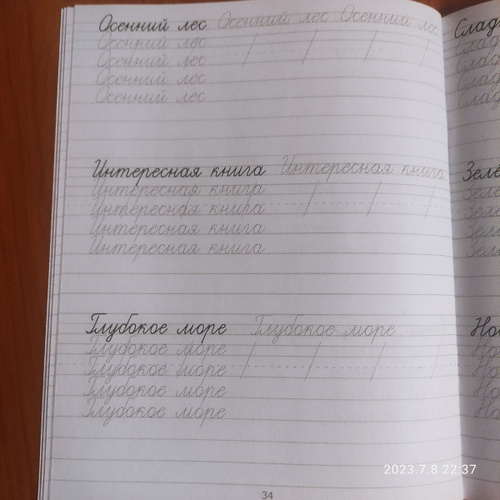 Осенний лес Осенний лес Осенний лес
Осенний лес
Осенний лес
Осенний лес
Осенний лес
Интересная книга Интересная книга
Интересная книга
Интересная книга
Интересная книга
Интересная книга
Глубокое море Глубокое море
Глубокое море
Глубокое море
Глубокое море
Глубокое море
34
2023.7.8 22:37